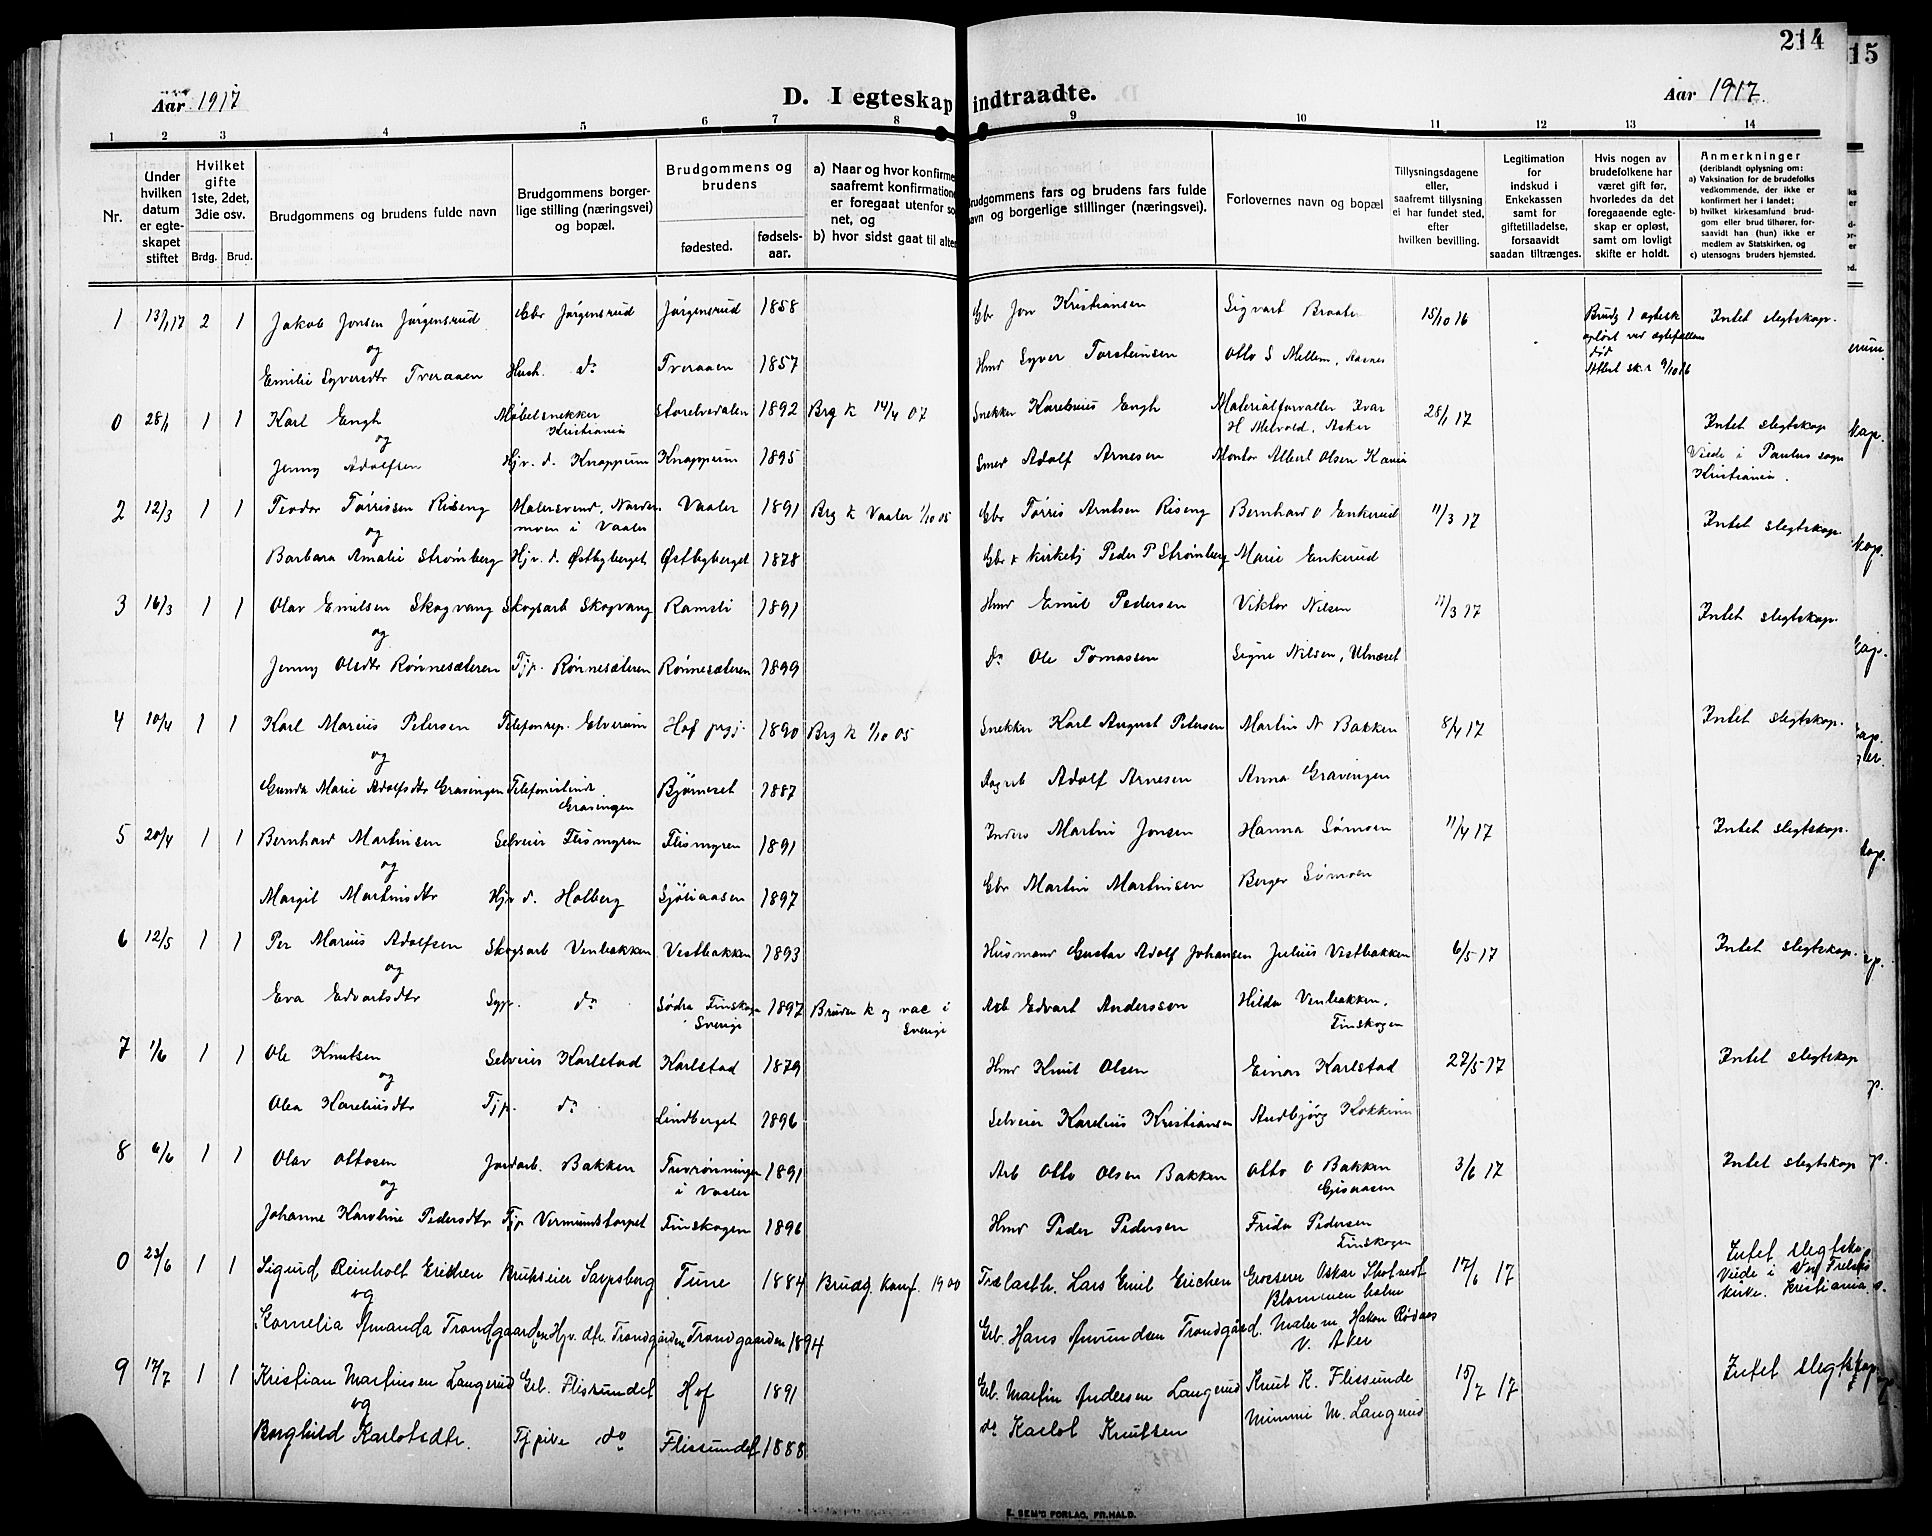 214
15
Aar 1917
D. I egteskap indtraadte.
Aar 1917.
1 2 3 4 5 6 7 8 9 10 11 12 13 14
Nr.
Under hvilken datum er egteskapet stiftet
Hvilket gifte 1ste, 2det, 3die osv.
Brdg. Brud.
Brudgommens og brudens fulde navn
Brudgommens borgerlige stilling (næringsvei) og bopæl.
Brudgommens og brudens
fødested. fødselsaar.
a) Naar og hvor konfirme saafremt konfirmation er foregaat utenfor so net, og
b) hvor sidst gaat til alte
Brudgommens fars og brudens fars fulde navn og borgerlige stillinger (næringsvei).
Forlovernes navn og bopæl
Tillysningsdagene eller, saafremt tillysning ei har fundet sted, efter hvilken bevilling.
Legitimation for indskud i Enkekassen samt for giftetilladelse, forsaavidt saadan tiltrænges.
Hvis nogen av brudefolkene har været gift før, hvorledes da det foregaaende egteskap er opløst, samt om lovligt skifte er holdt.
Anmerkninger
(deriblandt oplysning om:
a) Vaksination for de brudefolks vedkommende, der ikke er konfirmert her i landet;
b) hvilket kirkesamfund brudgom eller brud tilhører, forsaavidt han (hun) ikke er medlem av Statskirken, og
c) utensogns bruders hjemsted.
1 13/1 17 2 1 Jakob Jonsen Jørgensrud Gbr Jørgensrud Jørgensrud 1858 Gbr Jon Kristiansen Sigvart Braaten 15/10 16 Brudg 1 egtesk opløst ved egtefællens død Attest sk.r 9/10 16 Intet slegtskap.
og
Emilie Syversdtr Tveraaen Hush. do Tveraaen 1857 Hmd Syver Torsteinsen Otto S Mellem, Aasnes
0 28/1 1 1 Karl Engh Møbelsnekker Kristiania Storelvedalen 1892 Brg k 14/4 07 Snekker Karelius Engh Materialforvalter Ivar H Melvold, Asker 28/1 17 Intet slegtskap
og
Jenny Adolfsen Hjv. d. Knappum Knappum 1895 Smed Adolf Arnesen Montør Albert Olsen Kania Viede i Paulus sogn Kristiania.
2 12/3 1 1 Teodor Tørrissen Riseng Malersvend, Nordermoen i Vaaler Vaaler 1891 Brg k Vaaler 1/10 05 Gbr Tørris Arntsen Riseng Bernhard O Enkerud 11/3 17 Intet slegtskap.
og
Barbara Amalie Strømberg Hjv. d. Østbyberget Østbyberget 1878 Gbr + kirketj Peder P Strømberg Marie Enkerud
3 16/3 1 1 Olav Emilsen Skogvang Skogsarb Skogvang Ramsli 1891 Hmd Emil Pedersen Viktor Nilsen 11/3 17 Intet slegtskap.
og
Jenny Olsdtr Rønnesæteren Tjp. Rønnesæteren Rønnesæteren 1899 do Ole Tomassen Signe Nilsen, Ulnæret
4 10/4 1 1 Karl Marius Petersen Telefonrep. Elverum Hof prgj. 1890 Brg k 1/10 05 Snekker Karl August Petersen Martin N Bakken 8/4 17 Intet slegtskap.
og
Gunda Marie Adolfsdtr Grasingen Telefonistinde Grasingen Bjørneset 1887 Dagarb Adolf Arnesen Anna Gravingen
5 20/4 1 1 Bernhard Martinsen Selveier Flismyren Flismyren 1891 Inders Martin Jonsen Hanna Sømoen 11/4 17 Intet slegtskap.
og
Margit Martinsdtr Hjv d. Holberg Sjøliaasen 1897 Gbr Martin Martinsen Berger Sømoen
6 12/5 1 1 Per Marius Adolfsen Skogsarb Venbakken Vestbakken 1893 Husmand Gustav Adolf Johansen Julius Vestbakken 6/5 17 Intet slegtskap.
og
Eva Edvartsdtr Syp. do Södra Finskoga Sverige 1897 Bruden k og vac i Sverige Arb Edvart Andersson Hilda Venbakken, Finskogen
7 1/6 1 1 Ole Knutsen Selveier Karlstad Karlstad 1879 Hmd Knut Olsen Einar Karlstad 27/5 17 Intet slegtskap
og
Olea Kareliusdtr Tjp. do Lindberget 1896 Selveier Karelius Kristiansen Andbjørg Kokkinn
8 6/6 1 1 Olav Ottosen Jordarb. Bakken Tuvrønningen i Vaaler 1891 Arb Otto Olsen Bakken Otto O Bakken Gjesaasen 3/6 17 Intet slegtskap
og
Johanne Karoline Pedersdtr Tjp Vermundstorpet Finskogen 1896 Hmd Peder Pedersen Frida Pedersen Finskogen
0 23/6 1 1 Sigurd Reinholt Erichsen Brukseier Sarpsborg Tune 1884 Brudg. konf. 1900 Trælasth. Lars Emil Erichsen Grosserer Oskar Blommenholm 17/6 17 Intet slegtskap Viede i Vor Frelsers kirke. Kristiania.
og
Kornelia Amanda Trondgaarden Hjv. dtr. Trondgården Trondgaarden 1894 Gbr. Hans Amundsen Trondgård. Malerm. Hakon Rødaas V. Aker
9 17/7 1 1 Kristian Martinsen Langerud Gbr. Flissundet Hof 1891 Gbr. Martin Andersen Langerud Knut K. Flissunde 15/7 17 Intet slegtskap
og
Borghild Karlotsdtr. Tjpike do Flissundet 1888 do Karlot Knutsen Mimmi M. Langerud
E. SEM'S FORLAG, FR.HALD.